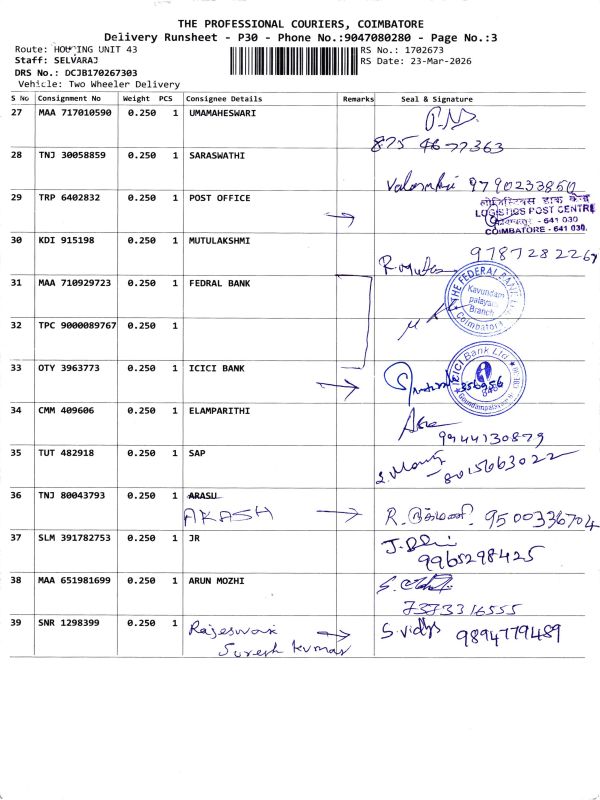 THE PROFESSIONAL COURIERS, COIMBATORE
Delivery Runsheet - P30 - Phone No.:9047080280 - Page No.:3
Route: HOUSING UNIT 43
RS No.: 1702673
Staff: SELVARAJ
RS Date: 23-Mar-2026
DRS No.: DCJB170267303
Vehicle: Two Wheeler Delivery
S No Consignment No Weight PCS Consignee Details Remarks Seal & Signature
27 MAA 717010590 0.250 1 UMAMAHESWARI
28 TNJ 30058859 0.250 1 SARASWATHI
9790233850
29 TRP 6402832 0.250 1 POST OFFICE
लोजिस्टिक्स डाक केन्द्र
LOGISTICS POST CENTRE
- 641 030
COIMBATORE - 641 030.
30 KDI 915198 0.250 1 MUTULAKSHMI
31 MAA 710929723 0.250 1 FEDRAL BANK
THE FEDERAL BANK
Kavundam
palayam
Branch
Coimbatore
32 TPC 9000089767 0.250 1
33 OTY 3963773 0.250 1 ICICI BANK
ICICI Bank Ltd.
34 CMM 409606 0.250 1 ELAMPARITHI
9944130879
35 TUT 482918 0.250 1 SAP
8015663022
36 TNJ 80043793 0.250 1 ARASU
AKASH
9500336704
37 SLM 391782753 0.250 1 JR
9965298425
38 MAA 651981699 0.250 1 ARUN MOZHI
7373316555
39 SNR 1298399 0.250 1 Rajeswari S. Vidya 9894779489
Suresh kumar